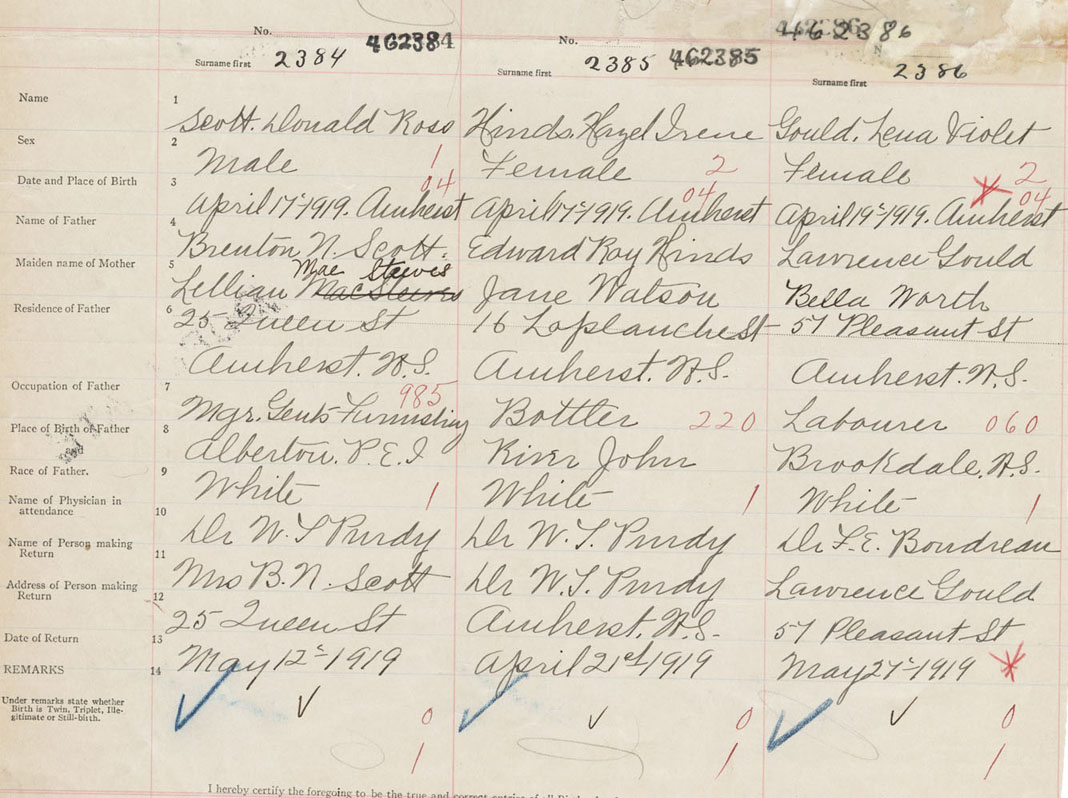 No. 462384 No. 462385 462386
Surname first 2384 Surname first 2385 Surname first 2386
Name 1 Scott. Donald Ross Hinds, Hazel Irene Gould, Lena Violet
Sex 2 Male 1 Female 2 Female 2
Date and Place of Birth 3 April 17-1919. Amherst 04 April 17-1919. Amherst 04 April 19-1919. Amherst 04
Name of Father 4 Brenton N. Scott. Edward Ray Hinds Lawrence Gould
Mae Steeves
Maiden name of Mother 5 Lillian MacSteeves Jane Watson Bella Worth
Residence of Father 6 25 Queen St 16 Laplanche St 57 Pleasant St
Amherst. N.S. Amherst. N.S. Amherst. N.S.
Occupation of Father 7 Mgr. Gents Furnishing 985 Bottler 220 Labourer 060
Place of Birth of Father 8 Alberton. P.E.I River John Brookdale. N.S.
Race of Father. 9 White 1 White 1 White 1
Name of Physician in attendance 10 Dr W. T Purdy Dr W. T. Purdy Dr F. E. Boudreau
Name of Person making Return 11 Mrs B. N. Scott Dr W. T. Purdy Lawrence Gould
Address of Person making Return 12 25 Queen St Amherst. N.S. 57 Pleasant St
Date of Return 13 May 12-1919 April 21st 1919 May 27-1919
REMARKS 14
Under remarks state whether
Birth is Twin, Triplet, Ille-
gitimate or Still-birth.
0 0 0
1 1 1
I hereby certify the foregoing to be the true and correct entries of all